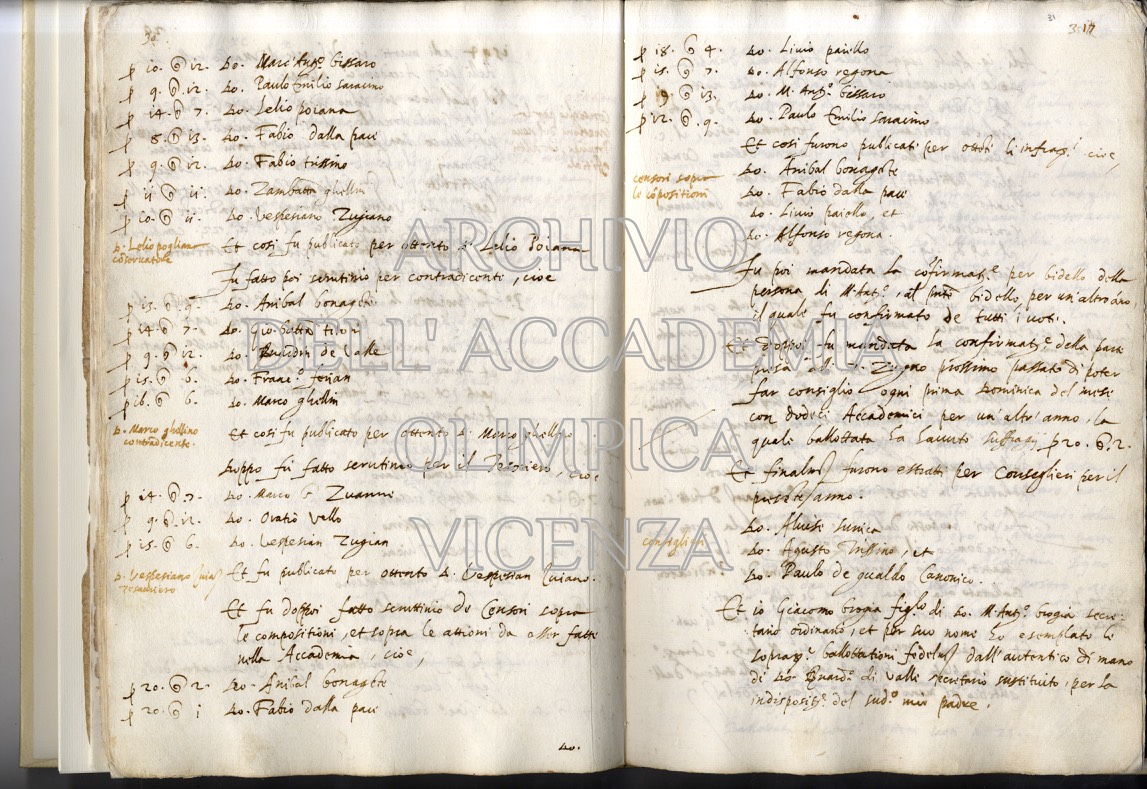 30
p 10. 9 12. Do. Marc'Ant.o bissaro
p 9. 9 12. Do. Paulo Emilio saracino
p 14. 9 7. Do. Lelio poiana
p 8. 9 13. Do. Fabio dalla pace
p 9. 9 12. Do. Fabio trissino
p 11 9 11. Do. Zambatta ghellin
p 10. 9 11. Do. Vespesiano Zugiano
D. Lelio pogliana
cōservatore
Et cosi fu publicato per ottento D. Lelio Poiana
Fu fatto poi scrutinio per contradicenti, cioè
p 13. 9 9. Do. Anibal bonagēte
p 14. 9 7. Do. gio. batta titoni
p 9. 9 12. Do. de Valle
p 15. 9 6. Do. Franc.o
p 16. 9 6. Do. Marco ghellin
D. Marco ghellino
contradicente.
Et cosi fu publicato per ottento D. Marco ghellino
Doppo fu fatto scrutinio per il Tesoriero, cioè
p 14. 9 7. Do. Marco Zuanne
p 9. 9 12. Do. Oratio Vello
p 15. 9 6. Do. Vespesian Zugian
D. Vespesiano
Tesauriero
Et fu publicato per ottento D. Vespesian Zuiano.
Et fu doppoi fatto scruttinio de Censori sopra
le compositioni, et sopra le attioni da esser fatte
nella Accademia, cioè,
p 20. 9 2. Do. Anibal bonagēte
p 20. 9 1 Do. Fabio dalla pace
Do.
31
317
p 18. 9 4. Do. Livio paiello
p 15. 9 7. Do. Alfonso regona
p 9 13. Do. M. Ant.o bissaro
p 12. 9 9. Do. Paulo Emilio saracino
Et cosi furono publicati per ottēti li infras.ti cioè,
censori sopra
le cōpositioni
Do. Anibal bonagēte
Do. Fabio dalla pace
Do. Livio paiello, et
Do. Alfonso regona.
Fu poi mandata la cōfirmat.e per bidello della
persona di M. Ant.o, al bidello, per un'altro año
il quale fu confirmato de tutti i voti.
Et doppoi fu mandata la confirmat.e della parte
presa alli Zugno prossimo passato di poter
far consiglio ogni prima Dominica del mese
con dodeli Accademici per un'altr'anno, la
quale ballottata ha havuto suffragij p 20. 9 2.
Et finalm.te furono estrati per Conseglieri per il
presēte anno.
consiglieri
Do. Alvise
Do. Agusto Trissino, et
Do. Paulo de gualdo Canonico.
Et io Giacomo brogia figl.o di Do. M. Ant.o brogia secre-
tario ordinario, et per suo nome ho esemplato le
soprasc.e ballottationi fedelm.te dall'autentico di mano
di Do. Bnard.o di Valle secretario sustituito, per la
indisposit.e del sud.o mio padre.
ARCHIVIO
DELL'ACCADEMIA
OLIMPICA
VICENZA